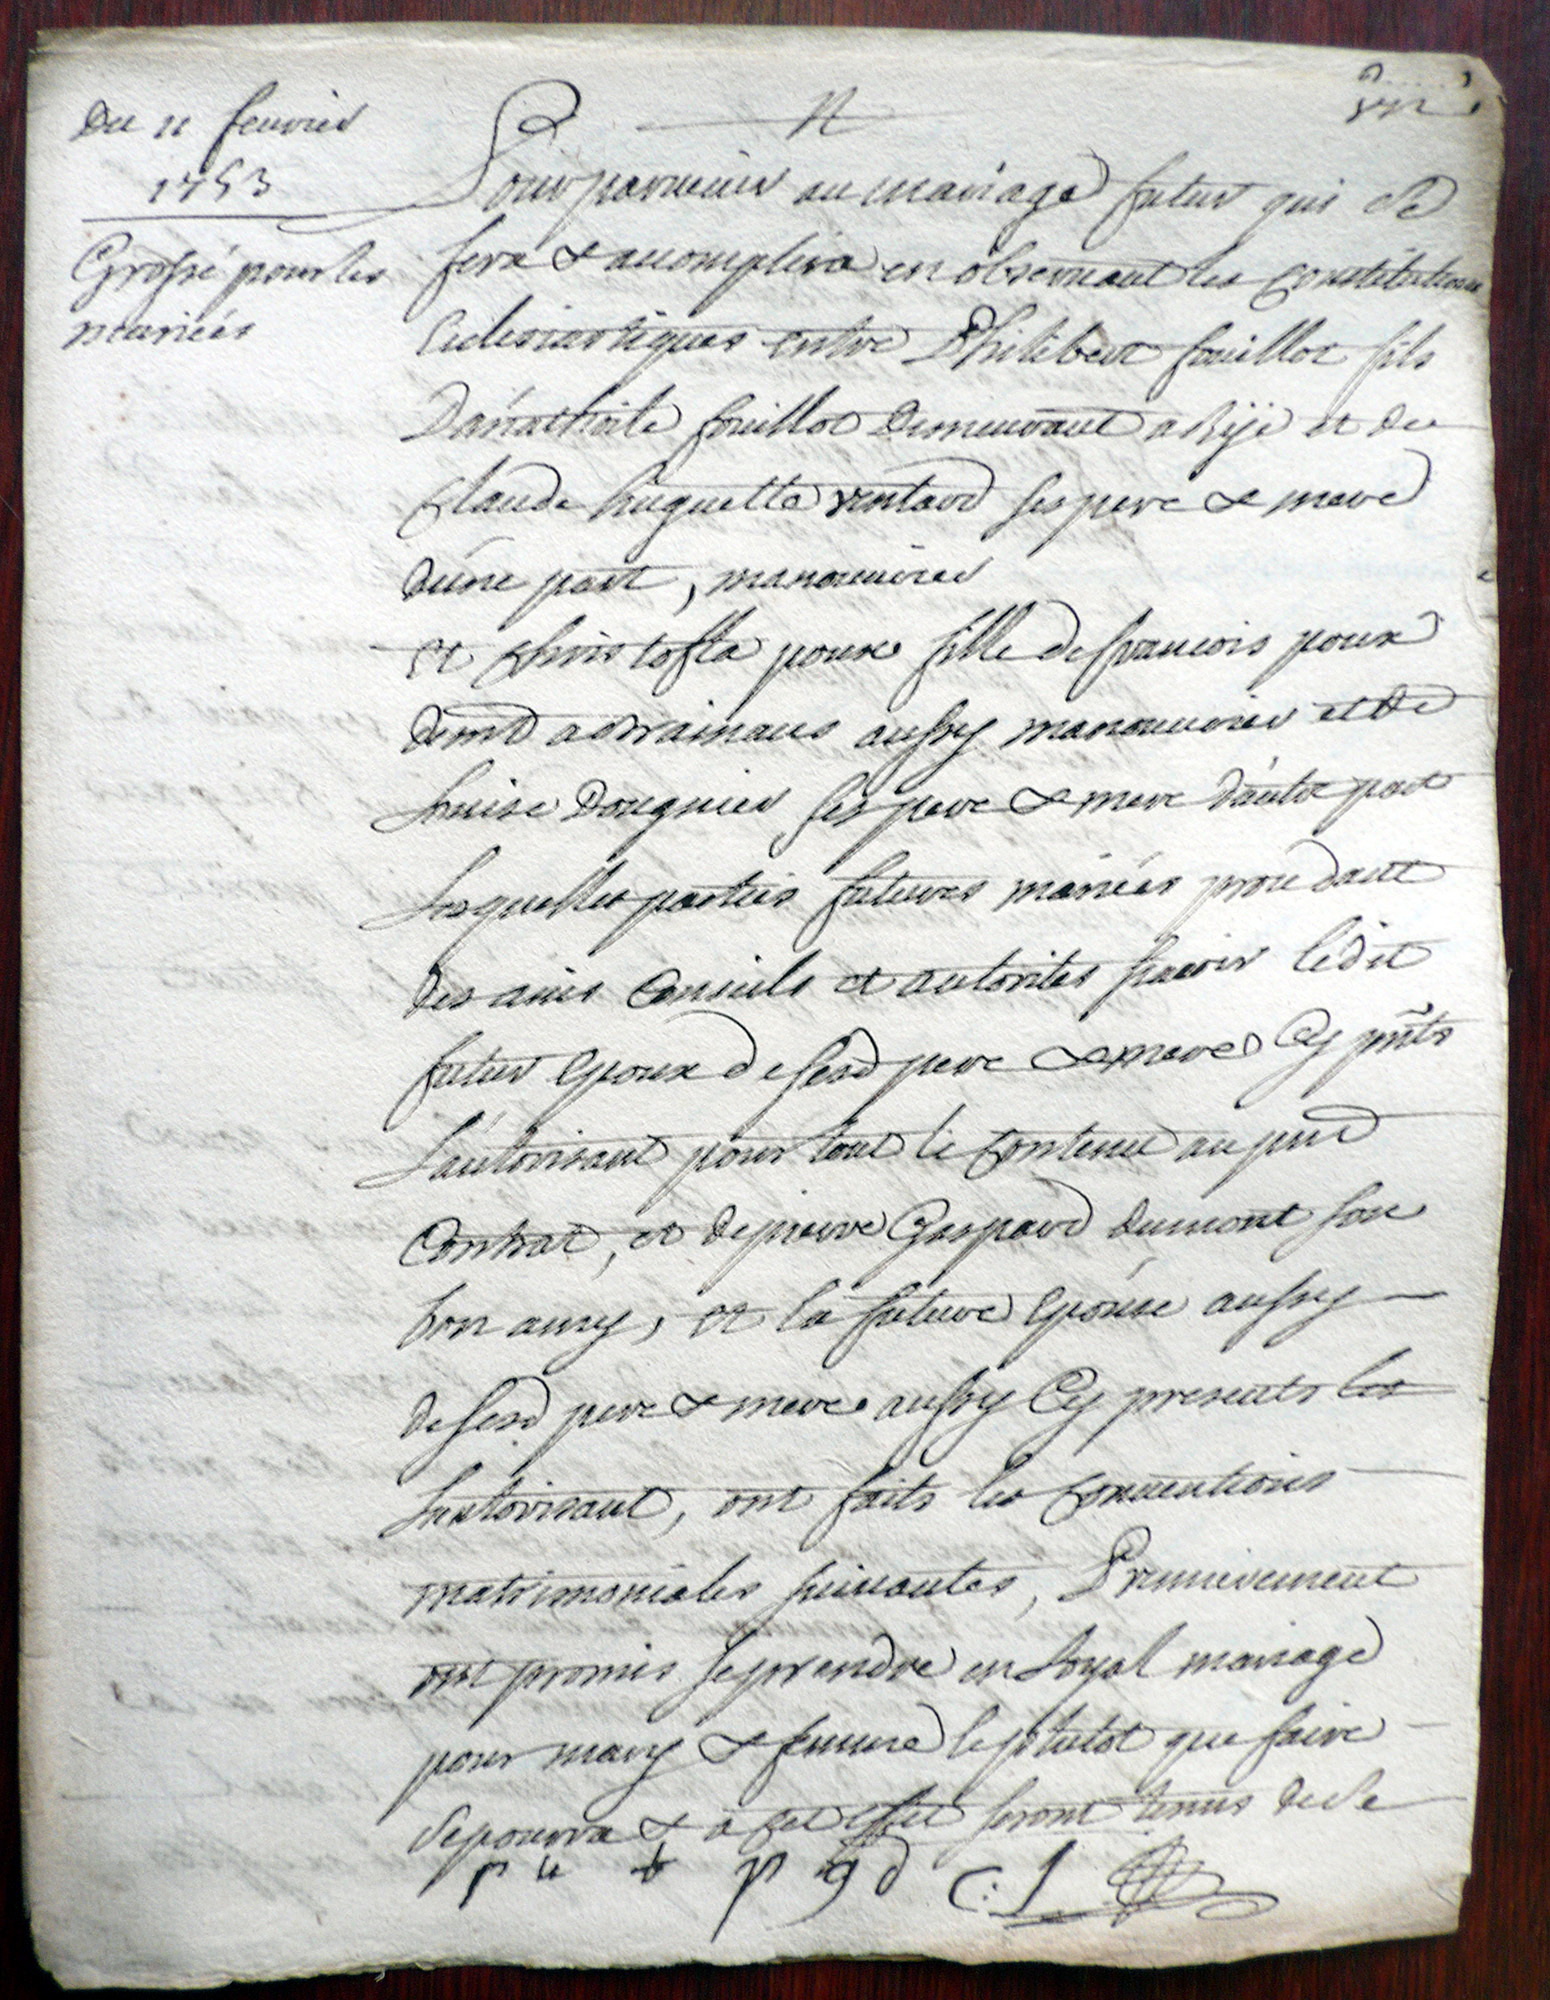 Du 11 feurier
1753
Grossé pour les
mariés
N
Pour paruenir au mariage futur qui se
fera & acomplira en obseruant les constitutions
Eclesiastiques entre Philibert fouillot fils
D'anathoile fouillot Demeurant a Rÿe et de
Claude huguette ses pere & mere
D'une part, manouurier
et Christofla poux fille de francois poux
demt a aussy manouurier et de
Louise Douguier ses pere & mere d'autre part
Lesquelles parties futures mariées procedant
des auis Conseils et autorités scauoir ledit
futur Epoux de sesd pere & mere Cy pnts
L'autorisant pour tout le contenu au pnt
Contrat, et de Gaspard dumont son
bon amy, et la future Epouse aussy
de sesd pere & mere aussy Cy presents les
Lautorisant, ont faits les conuentions
matrimoniales suiuantes, Premierement
ont promis se prendre en Loyal mariage
pour mary & femme le plutot que faire
se pourra & a cet effet seront tenus de se